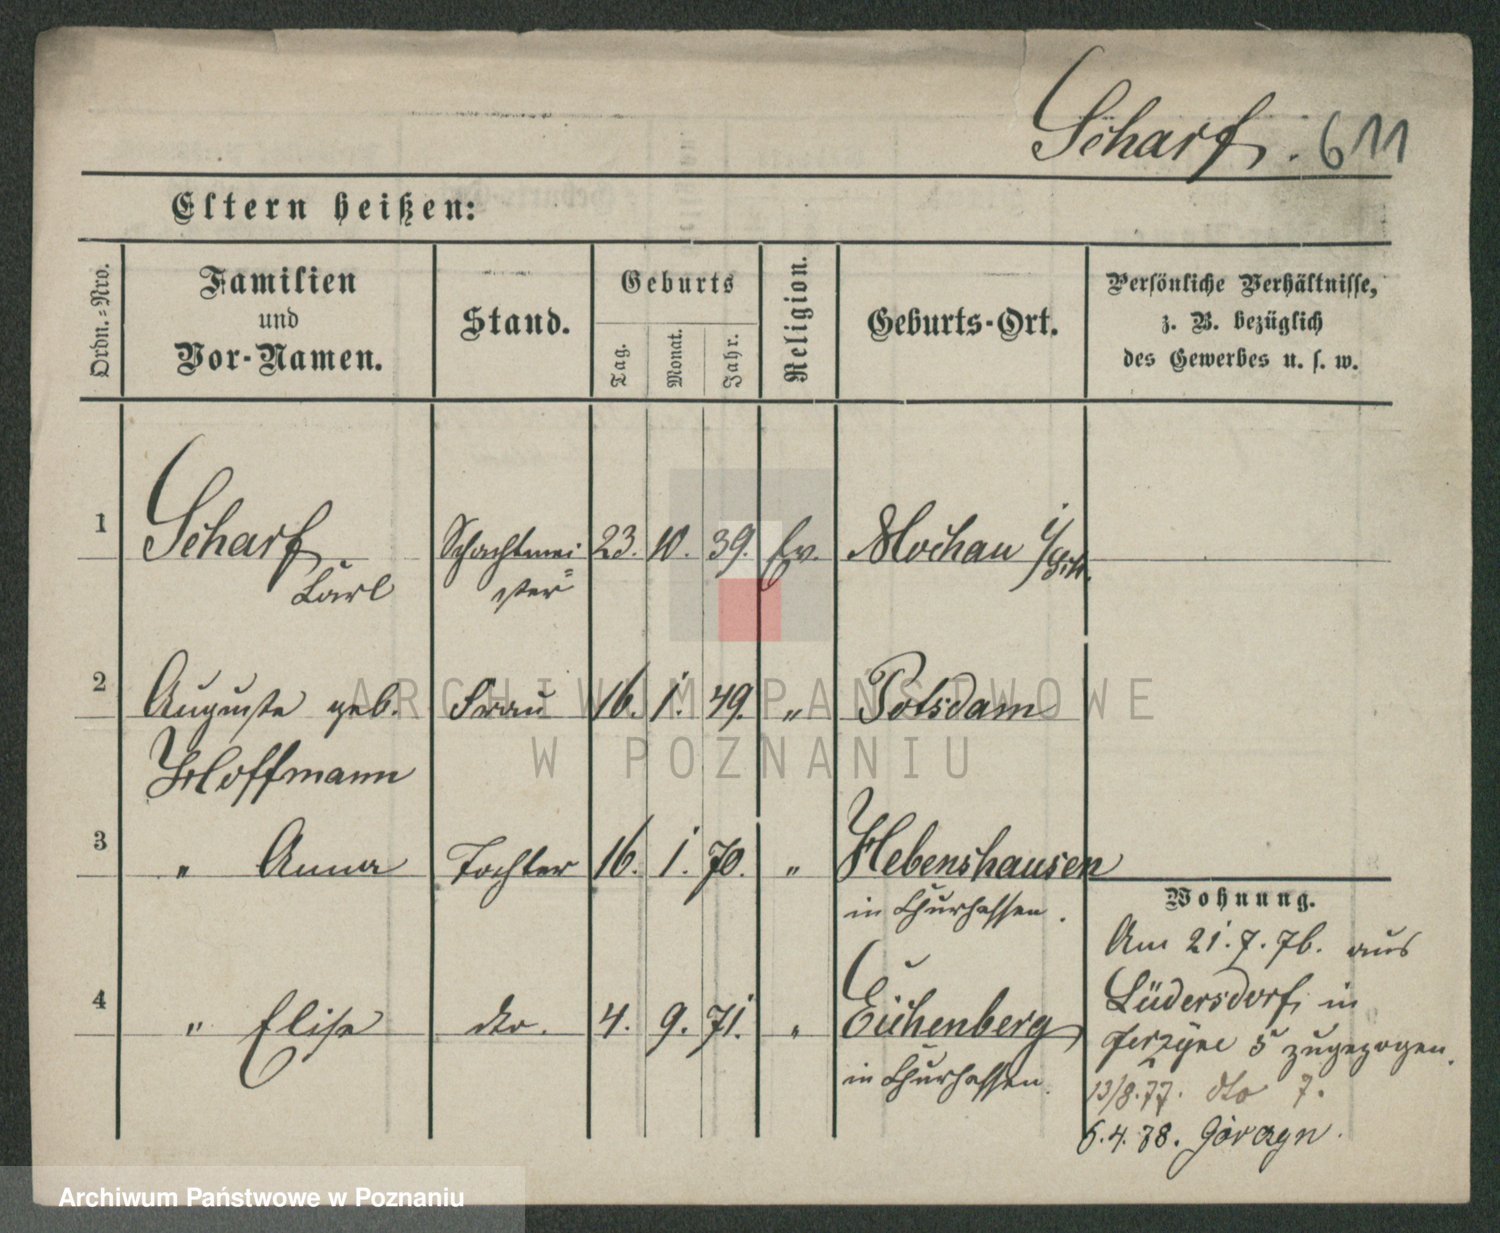 Scharf. 611
Eltern heißen:
Ordn.-Nro.
Familien
und
Vor-Namen.
Stand.
Geburts
Tag.
Monat.
Jahr.
Religion.
Geburts-Ort.
Persönliche Verhältnisse,
z. B. bezüglich
des Gewerbes u. s. w.
1 Scharf Schachtmei= 23. 10. 39. Ev. Mochau i/
Carl ster
2 Auguste geb. Frau 16. 1. 49. " Potsdam
Hoffmann
3 " Anna Tochter 16. 1. 70. " Hebenshausen
in Churhessen.
4 " Elise dto. 4. 9. 71. " Eichenberg
in Churhessen.
Wohnung.
Am 21.7.76. aus
Lüdersdorf, in
Jerzyce 5 zugezogen.
13/8.77. dto 7.
6.4.78.
ARCHIWUM PAŃSTWOWE
W POZNANIU
Archiwum Państwowe w Poznaniu